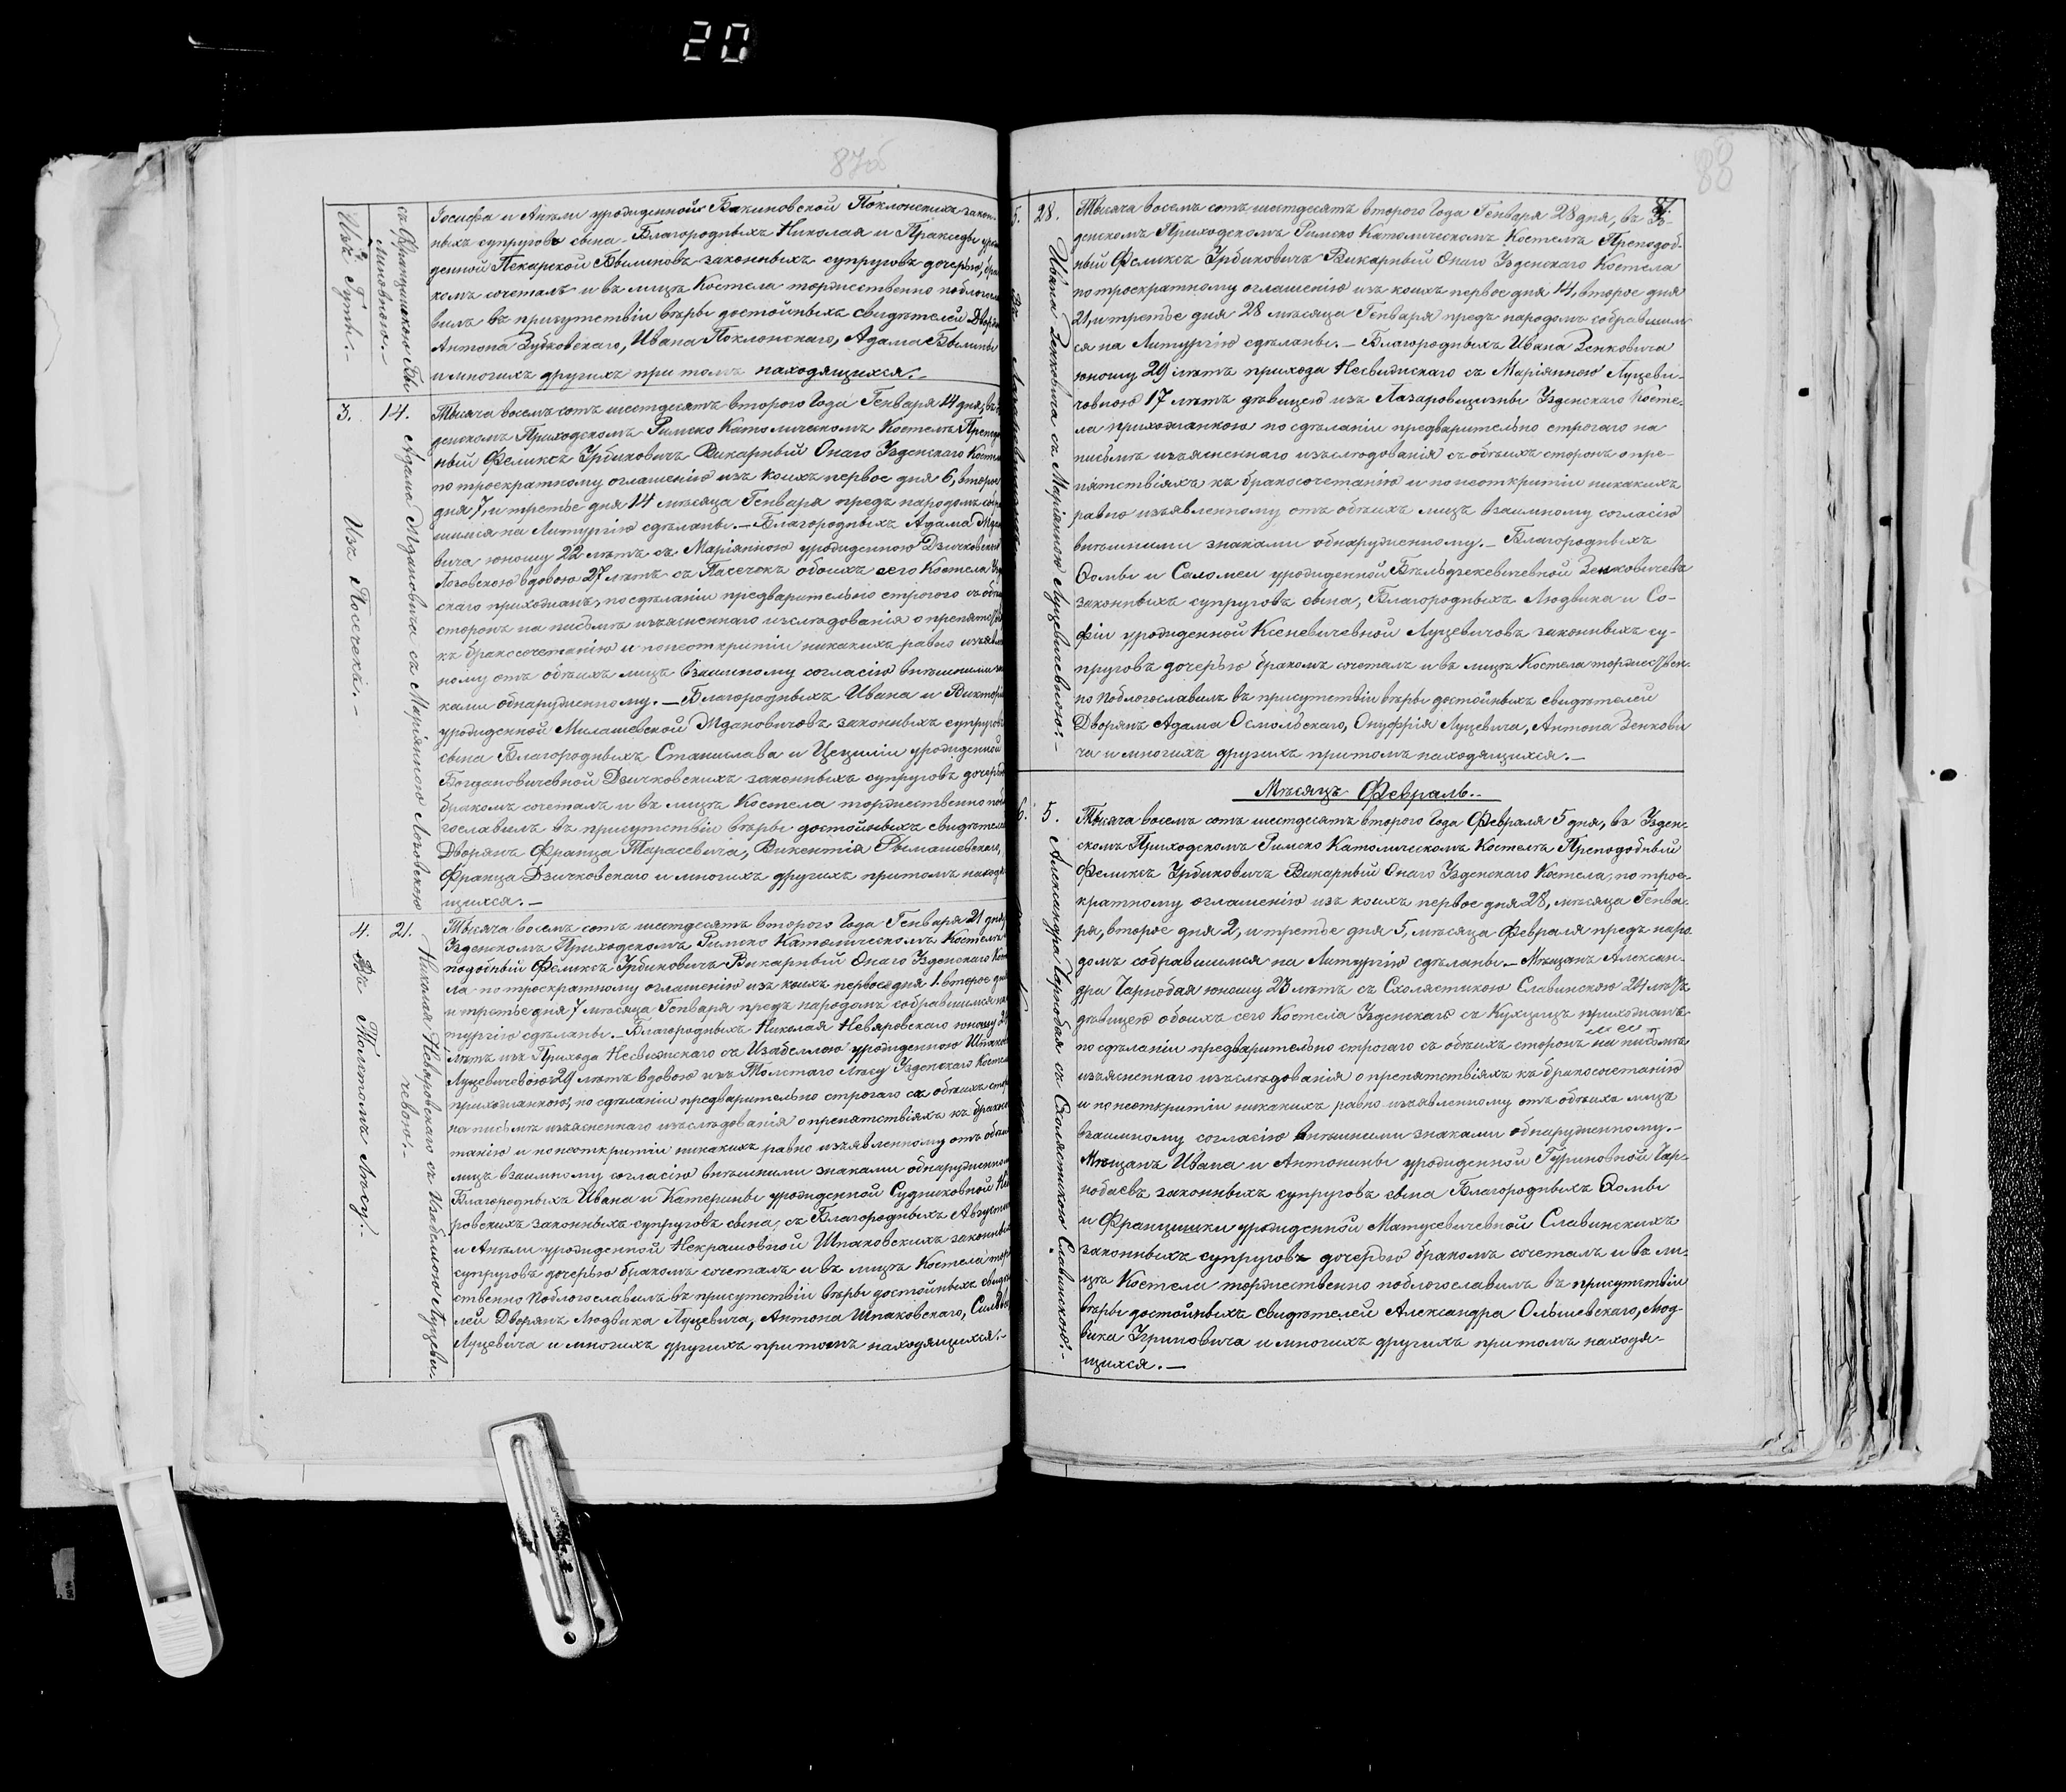 20
87об
съ Францишкою Бы-
линовною.-
Изъ Гуты.-
Іосифа и Анѣли урожденной Бакиновской Поклонскихъ закон-
ныхъ супруговъ сына - Благородныхъ Николая и Пракседы уро
жденной Пекарской Былиновъ законныхъ супруговъ дочерью, бра
комъ сочеталъ и въ лицѣ Костела торжественно поблогосл
вилъ въ присутствіи вѣры достойныхъ свидѣтелей Дворян
Антона Зубковскаго, Ивана Поклонскаго, Адама Былины
и многихъ другихъ при томъ находящихся.-
3.
14.
Изъ Посечекъ.-
Адама Ждановича съ Маріянною Лозовскою
Тысяча восемъ сотъ шестдесятъ второго Года Генваря 14 дня, въ
денскомъ Приходскомъ Римско Католическомъ Костелѣ Препод
ный Феликсъ Урбиковичъ Викарный Онаго Узденскаго Косте
по троекратному оглашенію изъ коихъ первое дня 6, второе
дня 7, и третье дня 14 мѣсяца Генваря предъ народомъ собра
шимся на Литургію сдѣланы.- Благородныхъ Адама Ждан
вича юношу 22 лѣтъ съ Маріянною урожденною Дзичковскою
Лозовскою вдовою 27 лѣтъ съ Пасечекъ обоихъ сего Костела Узд
скаго прихожанъ, по сдѣланіи предварительно строгого съ обѣи
сторонъ на письмѣ изъясненнаго изслѣдованія о препятств
къ бракосочетанію и по неоткрытіи никакихъ равно изъявл
ному отъ обѣихъ лицъ взаимному согласію внѣшними зна
ками обнаруженному.- Благородныхъ Ивана и Виктори
урожденной Милашевской Ждановичовъ законныхъ супруговъ
сына Благородныхъ Станислава и Цециліи урожденной
Богдановичевной Дзичковскихъ законныхъ супруговъ дочерью
бракомъ сочеталъ и въ лицѣ Костела торжественно поб
гославилъ въ присутствіи вѣры достойныхъ свидѣтеле
Дворянъ Франца Тарасевича, Викентія Рымашевскаго,
Франца Дзичковскаго и многихъ другихъ при томъ находя
щихся.-
4.
21.
Въ Толстомъ Лѣсу.-
Николая Невяровскаго съ Изабеллою Луцеви-
чевою.-
Тысяча восемъ сотъ шестдесятъ второго Года Генваря 21 дня,
Узденскомъ Приходскомъ Римско Католическомъ Костелѣ
подобный Феликсъ Урбиковичъ Викарный Онаго Узденскаго Кост
ла по троекратному оглашенію изъ коихъ первое дня 1. второе дн
и третье дня 7 мѣсяца Генваря предъ народомъ собравшимся на
тургію сдѣланы.- Благородныхъ Николая Невяровскаго юношу 2
лѣтъ изъ Прихода Несвижскаго съ Изабеллою урожденною Шпаков
Луцевичевою 29 лѣтъ вдовою изъ Толстаго Лѣсу Узденскаго Косте
прихожанкою, по сдѣланіи предварительно строгаго съ обѣихъ сто
на письмѣ изъясненнаго изслѣдованія о препятствіяхъ къ браκосо
танію и по неоткрытіи никакихъ равно изъявленному отъ обѣи
лицъ взаимному согласію внѣшними знаками обнаруженном
Благородныхъ Ивана и Катерины урожденной Судниковной Не
ровскихъ законныхъ супруговъ сына, съ Благородныхъ Августи
и Анѣли урожденной Некрашовной Шпаковскихъ законны
супруговъ дочерью бракомъ сочеталъ и въ лицѣ Костела тор
ственно поблогославилъ въ присутствіи вѣры достойныхъ свидѣ
лей Дворянъ Людвика Луцевича, Антона Шпаковскаго,
Луцевича и многихъ другихъ при томъ находящихся.-
88
5.
28.
Ивана Зенковича съ Маріянною Луцевичевною.-
Тысяча восемъ сотъ шестдесятъ второго Года Генваря 28 дня, въ Уз-
денскомъ Приходскомъ Римско Католическомъ Костелѣ Преподоб-
ный Феликсъ Урбиковичъ Викарный Онаго Узденскаго Костела
по троекратному оглашенію изъ коихъ первое дня 14, второе дня
21, и третье дня 28 мѣсяца Генваря предъ народомъ собравшим-
ся на Литургію сдѣланы.- Благородныхъ Ивана Зенковича
юношу 29 лѣтъ прихода Несвижскаго съ Маріянною Луцеви-
човною 17 лѣтъ дѣвицею изъ Лазаровщизны Узденскаго Косте-
ла прихожанкою по сдѣланіи предварительно строгаго на
письмѣ изъясненнаго изслѣдованія съ обѣихъ сторонъ о пре-
пятствіяхъ къ бракосочетанію и по неоткрытіи никакихъ
равно изъявленному отъ обѣихъ лицъ взаимному согласію
внѣшними знаками обнаруженному.- Благородныхъ
Ѳомы и Саломеи урожденной Бѣльдзекевичевной Зенковичевъ
законныхъ супруговъ сына, Благородныхъ Людвика и Со-
фіи урожденной Ксеневичевной Луцевичовъ законныхъ су-
пруговъ дочерью бракомъ сочеталъ и въ лицѣ Костела торжествен-
но поблогославилъ въ присутствіи вѣры достойныхъ свидѣтелей
Дворянъ Адама Осмольскаго, Онуфрія Луцевича, Антона Зенкови
ча и многихъ другихъ при томъ находящихся.-
Мѣсяцъ Февраль.-
6.
5.
Александра Чарнобая съ Схолястикою Славинскою.-
Тысяча восемъ сотъ шестдесятъ второго Года Февраля 5 дня, въ Узден-
скомъ Приходскомъ Римско Католическомъ Костелѣ Преподобный
Феликсъ Урбиковичъ Викарный Онаго Узденскаго Костела, по трое-
кратному оглашенію изъ коихъ первое дня 28, мѣсяца Генва-
ря, второе дня 2, и третье дня 5, мѣсяца Февраля предъ наро-
домъ собравшимся на Литургію сдѣланы.- Мѣщанъ Алексан-
дра Чарнобая юношу 23 лѣтъ съ Схолястикою Славинскою 24 лѣтъ
дѣвицею обоихъ сего Костела Узденскаго съ Кухцицъ прихожанъ
по сдѣланіи предварительно строгаго съ обѣихъ сторонъ на письмѣ
изъясненнаго изслѣдованія о препятствіяхъ къ бракосочетанію
и по неоткрытіи никакихъ равно изъявленному отъ обѣихъ лицъ
взаимному согласію внѣшними знаками обнаруженному.-
Мѣщанъ Ивана и Антонины урожденной Гуриновной Чар-
нобаевъ законныхъ супруговъ сына Благородныхъ Ѳомы
и Францишки урожденной Матусевичевной Славинскихъ
законныхъ супруговъ дочерью бракомъ сочеталъ и въ ли-
цѣ Костела торжественно поблогославилъ въ присутствіи
вѣры достойныхъ свидѣтелей Александра Ольшевскаго, Люд-
вика Угриновича и многихъ другихъ при томъ находя-
щихся.-